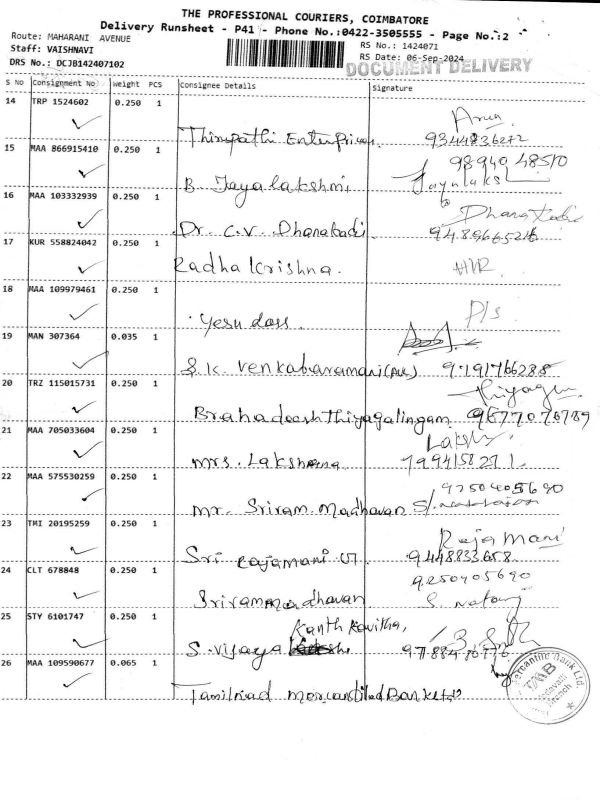 THE PROFESSIONAL COURIERS, COIMBATORE
Delivery Runsheet - P41 - Phone No.:0422-3505555 - Page No.:2
Route: MAHARANI AVENUE
RS No.: 1424071
Staff: VAISHNAVI
RS Date: 06-Sep-2024
DRS No.: DCJB142407102
DOCUMENT DELIVERY
S No Consignment No Weight PCS Consignee Details Signature
14 TRP 1524602 0.250 1
Thirupathi Enterprises 9344836272
15 MAA 866915410 0.250 1 98940 48510
B. Jayalakshmi Jayalaksh
16 MAA 103332939 0.250 1
Dr. C.V. Dhanabadi
17 KUR 558824042 0.250 1
Radha Krishna.
18 MAA 109979461 0.250 1 P/s
Yesu doss.
19 MAN 307364 0.035 1
S.K. Venkataramani 9191766288
20 TRZ 115015731 0.250 1
Brahadeeshthiyagalingam 9677076789
21 MAA 705033604 0.250 1
Mrs. Lakshmna 7994158271
22 MAA 575530259 0.250 1
Mr. Sriram Madhavan
23 TMI 20195259 0.250 1 Raja Mani
Sri Rajamani 9448833658
24 CLT 678848 0.250 1 9250405690
Srirammadhavan
25 STY 6101747 0.250 1 Kanth Kavitha,
S. Vijaya
26 MAA 109590677 0.065 1
Tamilnad Mercantile Bank Ltd
Mercantile Bank Ltd.
Branch